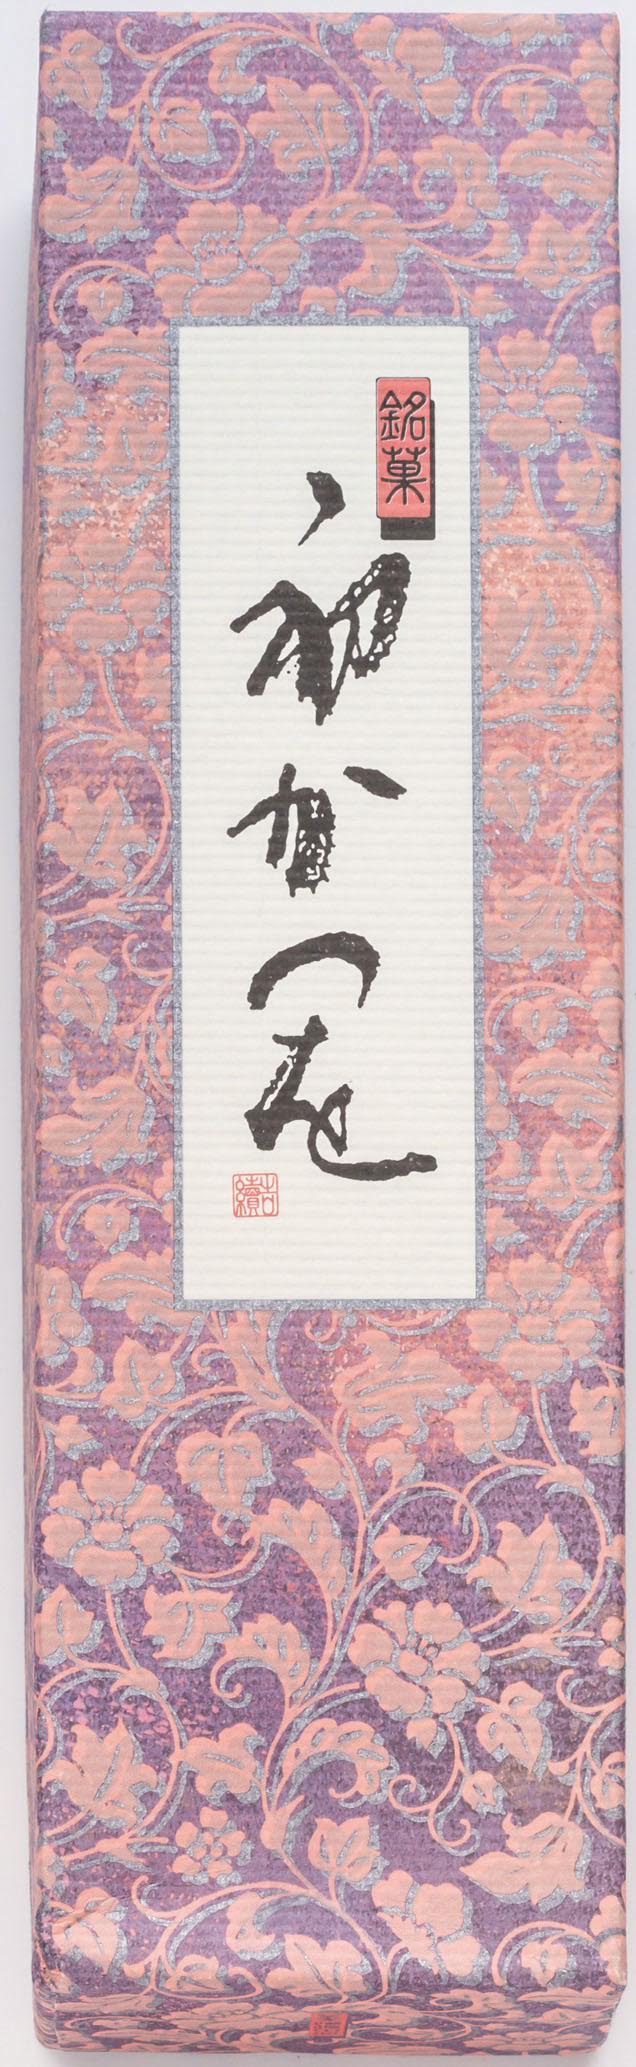 銘菓
初かつを